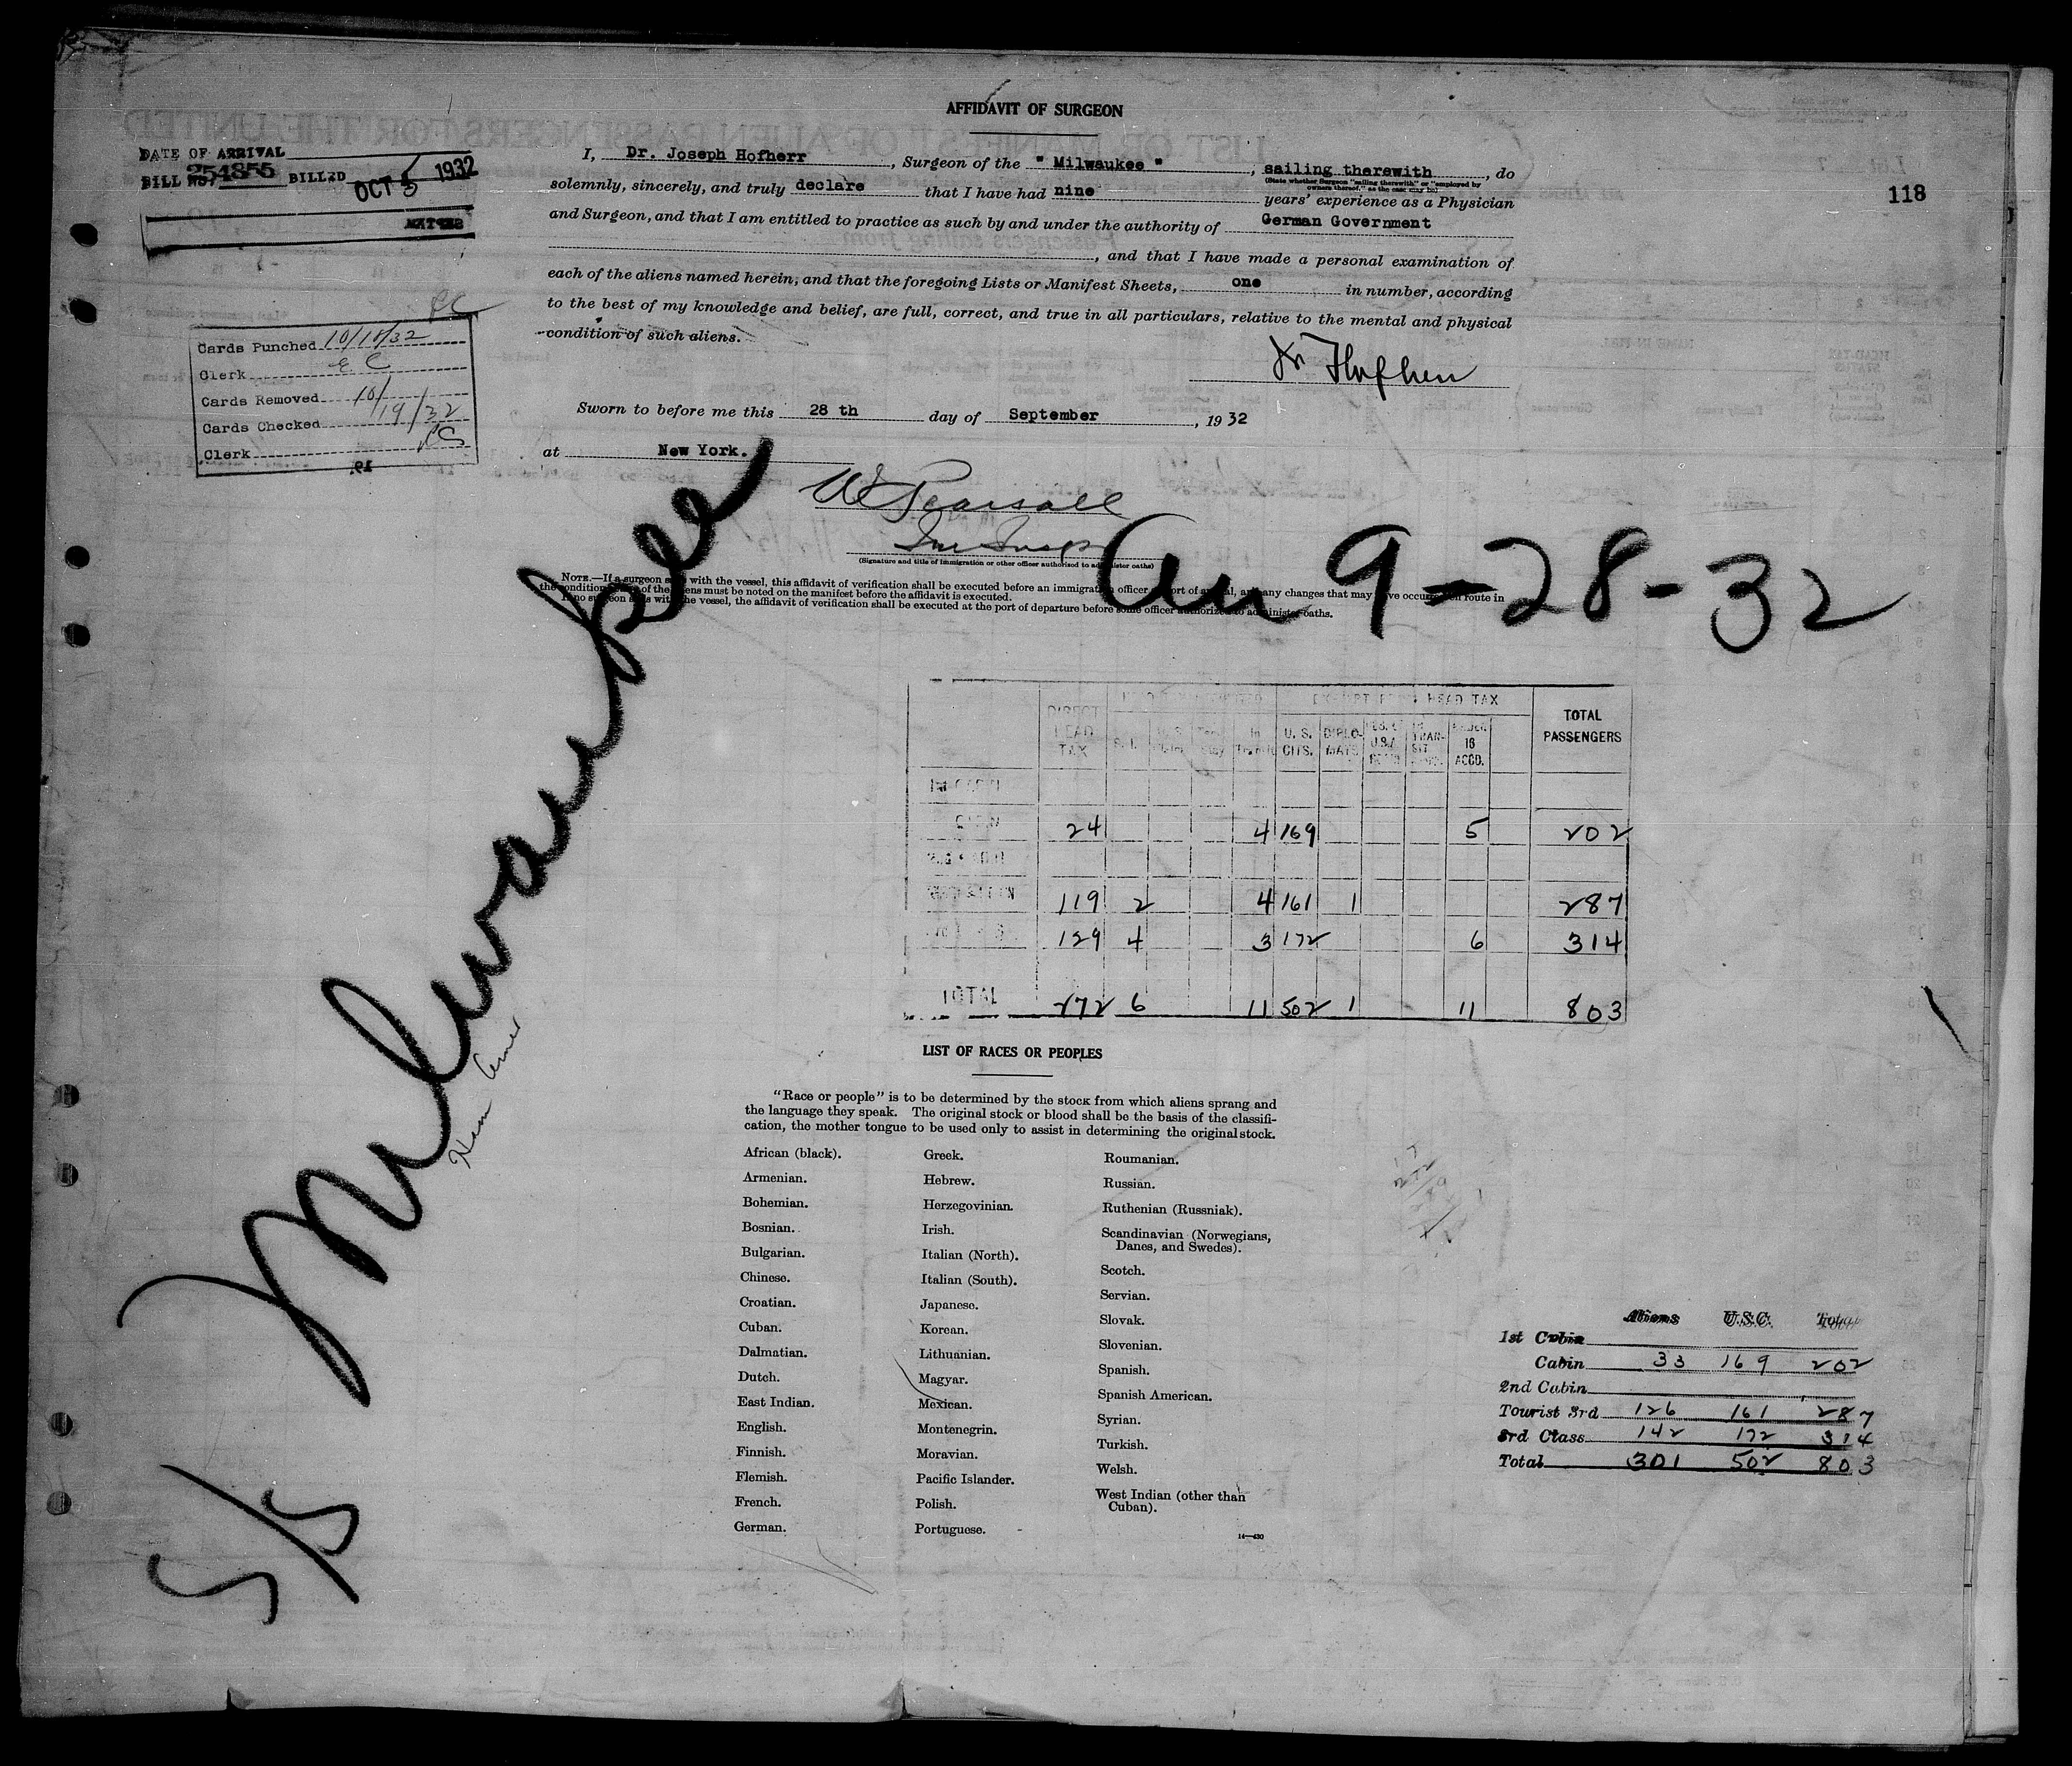 AFFIDAVIT OF SURGEON
DATE OF ARRIVAL
BILL NO. 254855 BILLED OCT 5 1932
118
I, Dr. Joseph Hofherr, Surgeon of the "Milwaukee", sailing therewith, do
(State whether Surgeon "sailing therewith" or "employed by
owners thereof," as the case may be)
solemnly, sincerely, and truly declare that I have had nine years' experience as a Physician
and Surgeon, and that I am entitled to practice as such by and under the authority of German Government
, and that I have made a personal examination of
each of the aliens named herein, and that the foregoing Lists or Manifest Sheets, one in number, according
to the best of my knowledge and belief, are full, correct, and true in all particulars, relative to the mental and physical
condition of such aliens.
Cards Punched 10/18/32
Clerk EC
Cards Removed 10/
Cards Checked 19/32
Clerk
Sworn to before me this 28 th day of September, 1932
at New York.
W Pearsall
Imm Insp
(Signature and title of immigration or other officer authorized to administer oaths)
NOTE.—If a surgeon sails with the vessel, this affidavit of verification shall be executed before an immigration officer at port of arrival, and any changes that may have occurred en route in
the condition of the aliens must be noted on the manifest before the affidavit is executed.
If no surgeon sails with the vessel, the affidavit of verification shall be executed at the port of departure before some officer authorized to administer oaths.
S/S Milwaukee
Arr 9-28-32
DIRECT HEAD TAX
EXEMPT FROM HEAD TAX
TOTAL PASSENGERS
S.I. In Transit U.S. CITS. DIPLOMATS UNDER 16 ACCD.
CABIN 24 4 169 5 202
119 2 4 161 1 287
129 4 3 172 6 314
TOTAL 272 6 11 502 1 11 803
LIST OF RACES OR PEOPLES
"Race or people" is to be determined by the stock from which aliens sprang and
the language they speak. The original stock or blood shall be the basis of the classifi-
cation, the mother tongue to be used only to assist in determining the original stock.
African (black).
Armenian.
Bohemian.
Bosnian.
Bulgarian.
Chinese.
Croatian.
Cuban.
Dalmatian.
Dutch.
East Indian.
English.
Finnish.
Flemish.
French.
German.
Greek.
Hebrew.
Herzegovinian.
Irish.
Italian (North).
Italian (South).
Japanese.
Korean.
Lithuanian.
Magyar.
Mexican.
Montenegrin.
Moravian.
Pacific Islander.
Polish.
Portuguese.
Roumanian.
Russian.
Ruthenian (Russniak).
Scandinavian (Norwegians,
Danes, and Swedes).
Scotch.
Servian.
Slovak.
Slovenian.
Spanish.
Spanish American.
Syrian.
Turkish.
Welsh.
West Indian (other than
Cuban).
14—430
Aliens U.S.C. Total
1st Cabin
Cabin 33 169 202
2nd Cabin
Tourist 3rd 126 161 287
3rd Class 142 172 314
Total 301 502 803